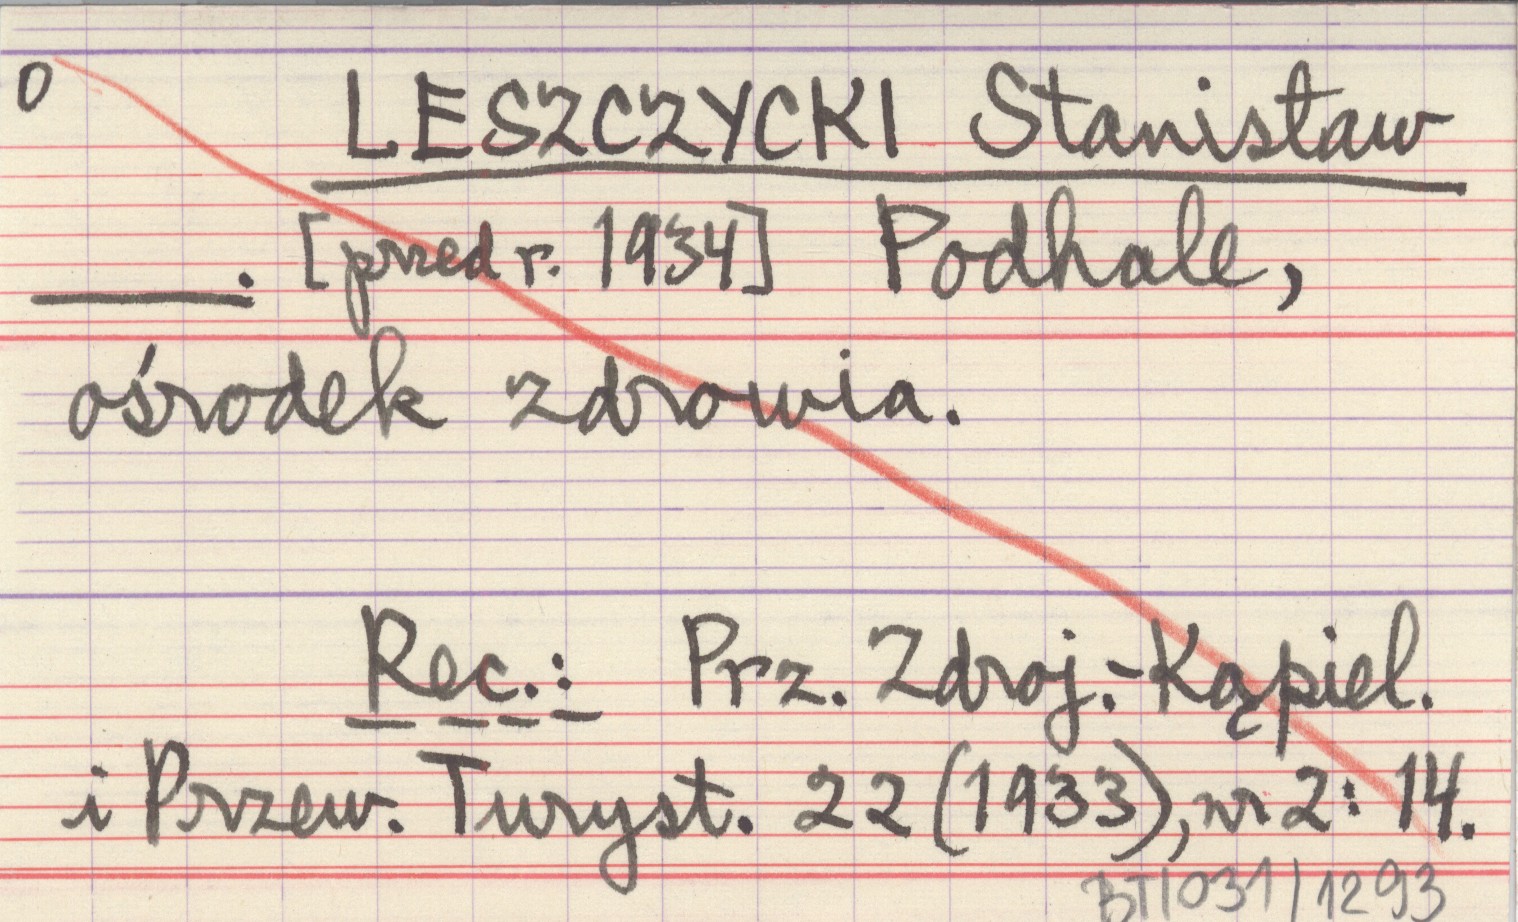 0
LESZCZYCKI Stanisław
______. [przed r. 1934] Podhale,
ośrodek zdrowia.
Rec.: Prz. Zdroj.-Kąpiel.
i Przew. Turyst. 22 (1933), nr 2: 14.
BT/031/1293